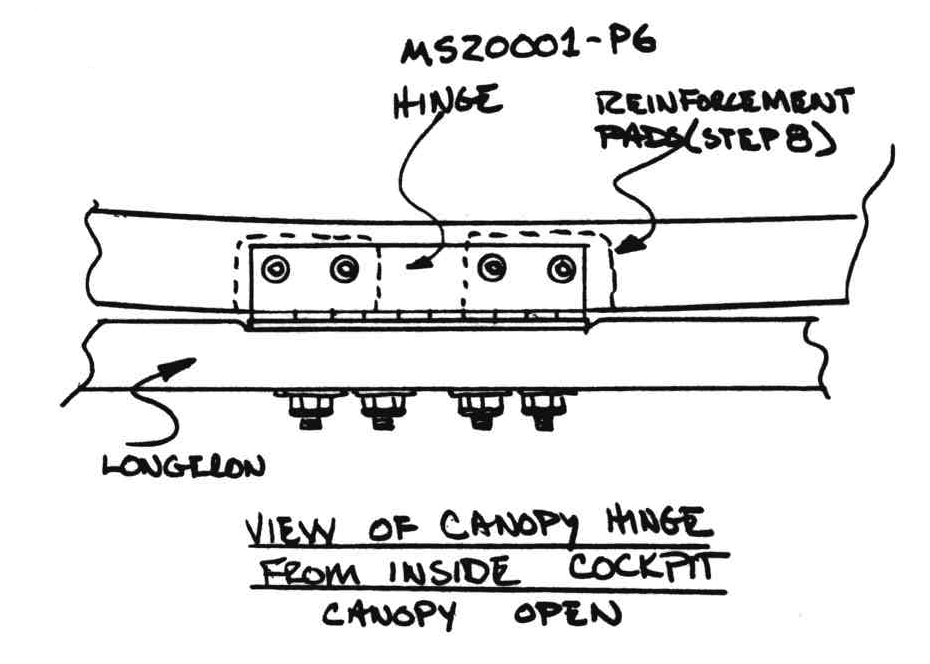 MS20001-P6
HINGE
REINFORCEMENT
PADS (STEP 8)
LONGERON
VIEW OF CANOPY HINGE
FROM INSIDE COCKPIT
CANOPY OPEN